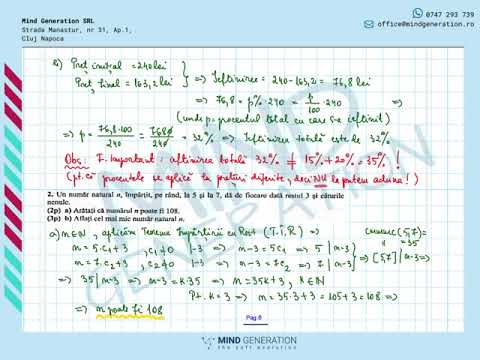 Mind Generation SRL
Strada Manastur, nr 31, Ap.1,
Cluj Napoca
0747 293 739
office@mindgeneration.ro
b) Preț inițial = 240 lei
Preț final = 163,2 lei } => Ieftinirea = 240-163,2 = 76,8 lei
=> 76,8 = p% · 240 = p/100 · 240 =>
(unde p = procentul total cu care s-a ieftinit)
=> p = 76,8·100/240 = 7680/240 = 32% => Ieftinirea totală este de 32%
Obs: F. Important: ieftinirea totală 32% ≠ 15% + 20% = 35% !
(pt. că procentele se aplică la prețuri diferite, deci NU le putem aduna!)
2. Un număr natural n, împărțit, pe rând, la 5 și la 7, dă de fiecare dată restul 3 și câturile
nenule.
(2p) a) Arătați că numărul n poate fi 108.
(3p) b) Aflați cel mai mic număr natural n.
a) n∈N, aplicăm Teorema Împărțirii cu Rest (T.Î.R) =>
n = 5·c₁+3 , c₁≠0 |-3 => n-3 = 5c₁ => 5 | n-3
n = 7·c₂+3 , c₂≠0 |-3 => n-3 = 7c₂ => 7 | n-3 } => [5,7] | n-3 =>
cmmmc(5,7) = 35
=> 35 | n-3 => n-3 = k·35 => n = 35k+3, k∈N
Pt. k = 3 => n = 35·3+3 = 105+3 = 108 =>
=> n poate fi 108
Pag.8
MIND GENERATION
the soft evolution